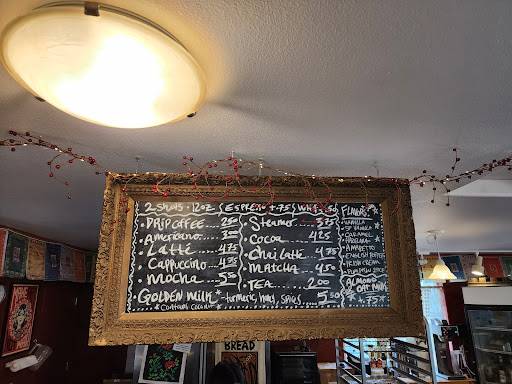 2 Shots · 12oz
Espresso + .75
Whip .50
Drip Coffee....2.50
Americano....3.00
Latté....4.75
Cappuccino..4.35
Mocha....5.50
Steamer....3.75
Cocoa....4.25
Chai Latte...4.75
Matcha....4.50
Tea....2.00
Golden Milk* - turmeric, honey, spices....5.50
*Contains Coconut
Flavors:
Vanilla
SF Vanilla
Caramel
Hazelnut
Amaretto
English Toffee
Irish Cream
Pumpkin Spice
Almond
Oat Milk
+ .75¢
BREAD